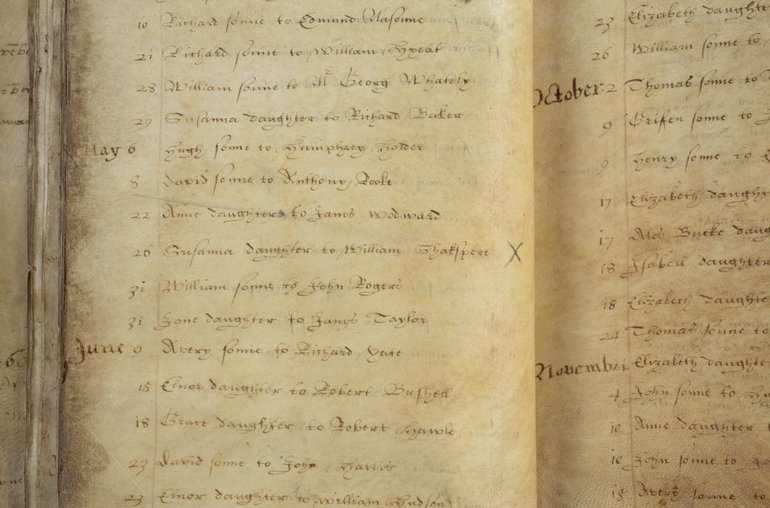 10 Richard sonne to Edmund
21 Richard sonne to William Hyeat
28 William sonne to Mr Georg Whately
29 Susanna daughter to Richard Baker
May 6 Hugh sonne to Humphrey Holder
8 David sonne to Anthony Rooke
22 Anne daughter to James Wodward
26 Susanna daughter to William Shakspere X
31 William sonne to John Rogers
31 Jone daughter to James Taylor
June 9 Avery sonne to Richard Yate
15 Elnor daughter to Robert Bushell
18 Grace daughter to Robert Hawle
23 David sonne to John Harris
23 Elnor daughter to William Hudson
23 Elizabeth daughte
26 William sonne to
October 2 Thomas sonne to
9 Grifen sonne to
Henry sonne to
17 Elizabeth daugh
17 Ales Bucke daug
18 Isabell daughter
18 Elizabeth daughte
24 Thomas sonne to
November 1 Elizabeth daughte
4 John sonne to Hu
10 Anne daughter
10 John sonne to
Avery sonne to